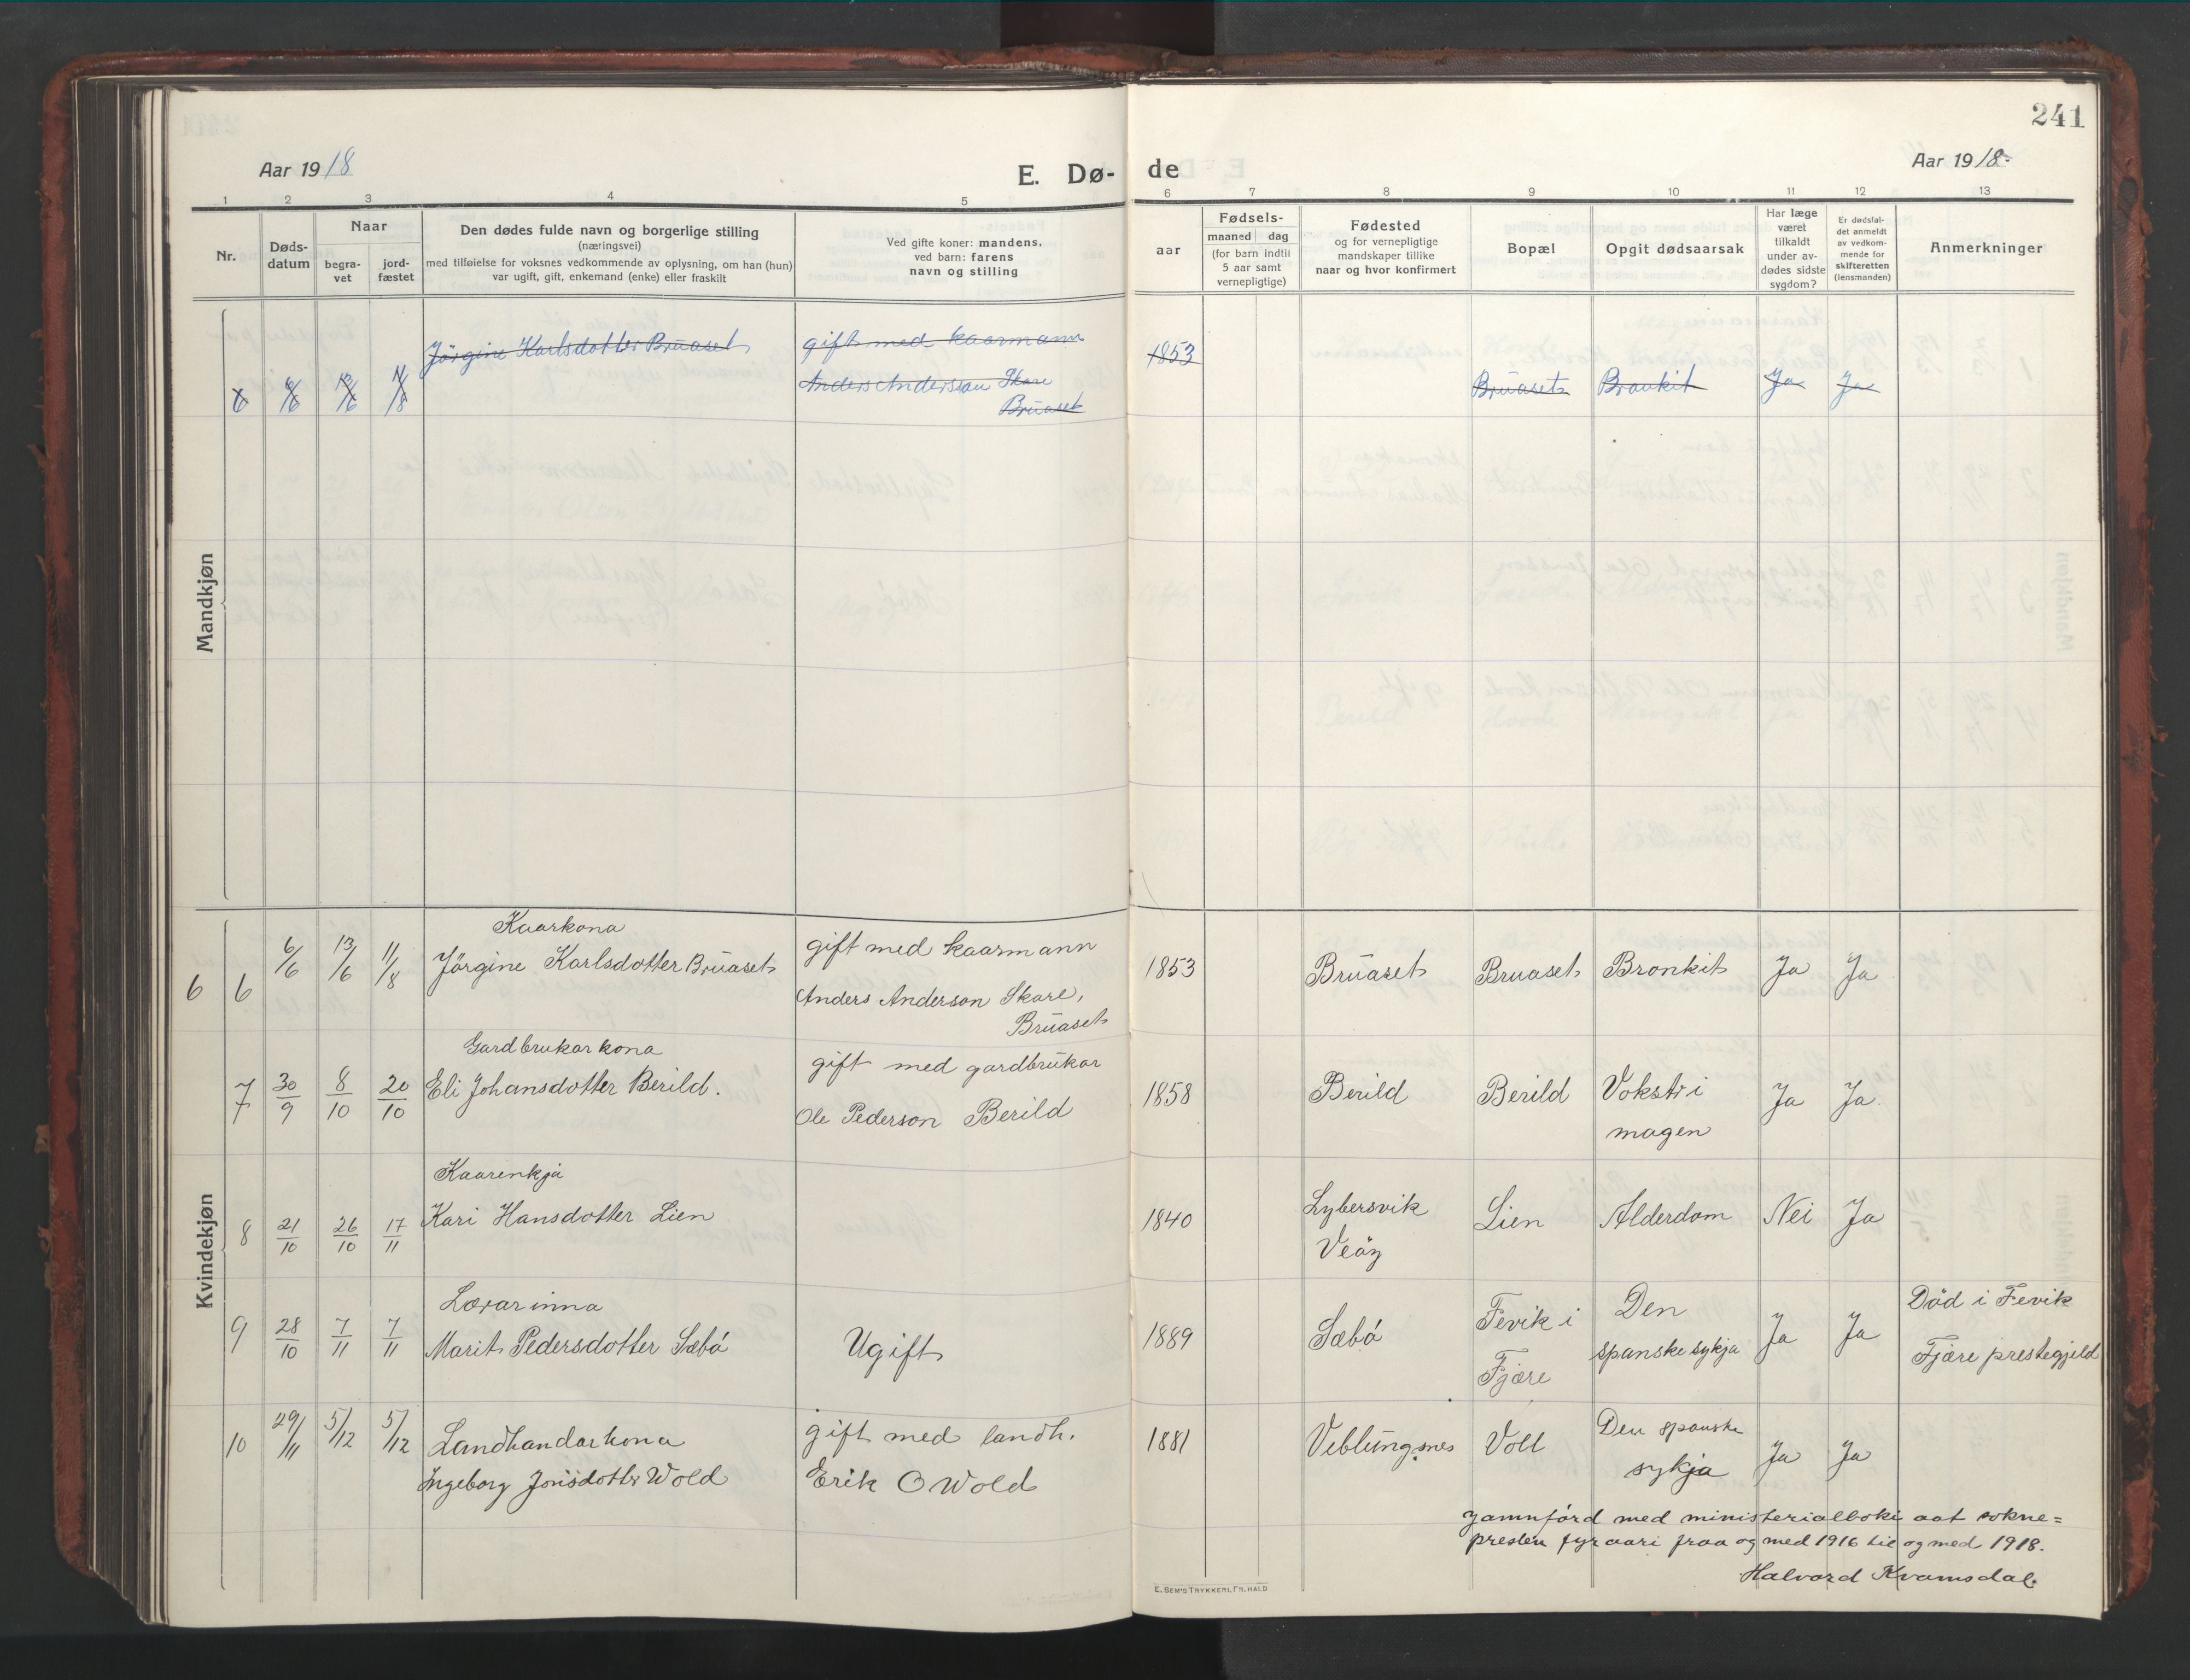 241
Aar 1918
E. Dø-
de
Aar 1918-
1 2 3 4 5 6 7 8 9 10 11 12 13
Nr.
Døds-
datum
Naar
begra-
vet
jord-
fæstet
Den dødes fulde navn og borgerlige stilling
(næringsvei)
med tilføielse for voksnes vedkommende av oplysning, om han (hun)
var ugift, gift, enkemand (enke) eller fraskilt
Ved gifte koner: mandens,
ved barn: farens
navn og stilling
aar
Fødsels-
maaned dag
(for barn indtil
5 aar samt
vernepligtige)
Fødested
og for vernepligtige
mandskaper tillike
naar og hvor konfirmert
Bopæl
Opgit dødsaarsak
Har læge
været
tilkaldt
under av-
dødes sidste
sygdom?
Er dødsfal-
det anmeldt
av vedkom-
mende for
skifteretten
(lensmanden)
Anmerkninger
Mandkjøn
6 6/6 13/6 11/8
Jörgine Karlsdotter Bruaset
gift med kaarmann
Anders Andersson Skare
Bruaset
1853
Bruaset
Bronkit
Ja
Ja
Kvindekjøn
6 6 6/6 13/6 11/8
Kaarkona
Jörgine Karlsdotter Bruaset
gift med kaarmann
Anders Anderson Skare,
Bruaset
1853
Bruaset
Bruaset
Bronkit
Ja
Ja
7 30/9 8/10 20/10
Gardbrukarkona
Eli Johansdotter Berild.
gift med gardbrukar
Ole Pederson Berild
1858
Berild
Berild
Vokstr i
magen
Ja
Ja.
8 21/10 26/10 17/11
Kaarenkja
Kari Hansdotter Lien
1840
Lybersvik
Veöy
Lien
Alderdom
Nei
Ja
9 28/10 7/11 7/11
Lærarinna
Marit Pedersdotter Sæbö
Ugift
1889
Sæbö
Fevik i
Fjære
Den
spanske sykja
Ja
Ja
Död i Fevik
Fjære prestegjeld
10 29/11 5/12 5/12
Landhandarkona
Ingeborg Jonsdotter Wold
gift med landh.
Erik O Wold
1881
Veblungsnes
Voll
Den spanske
sykja
Ja
Ja
Jamnförd med ministerialboki aat sokne=
presten fyr aari fraa og med 1916 til og med 1918.
Halvard Kvamsdal.
E. SEM'S TRYKKERI, FR.HALD